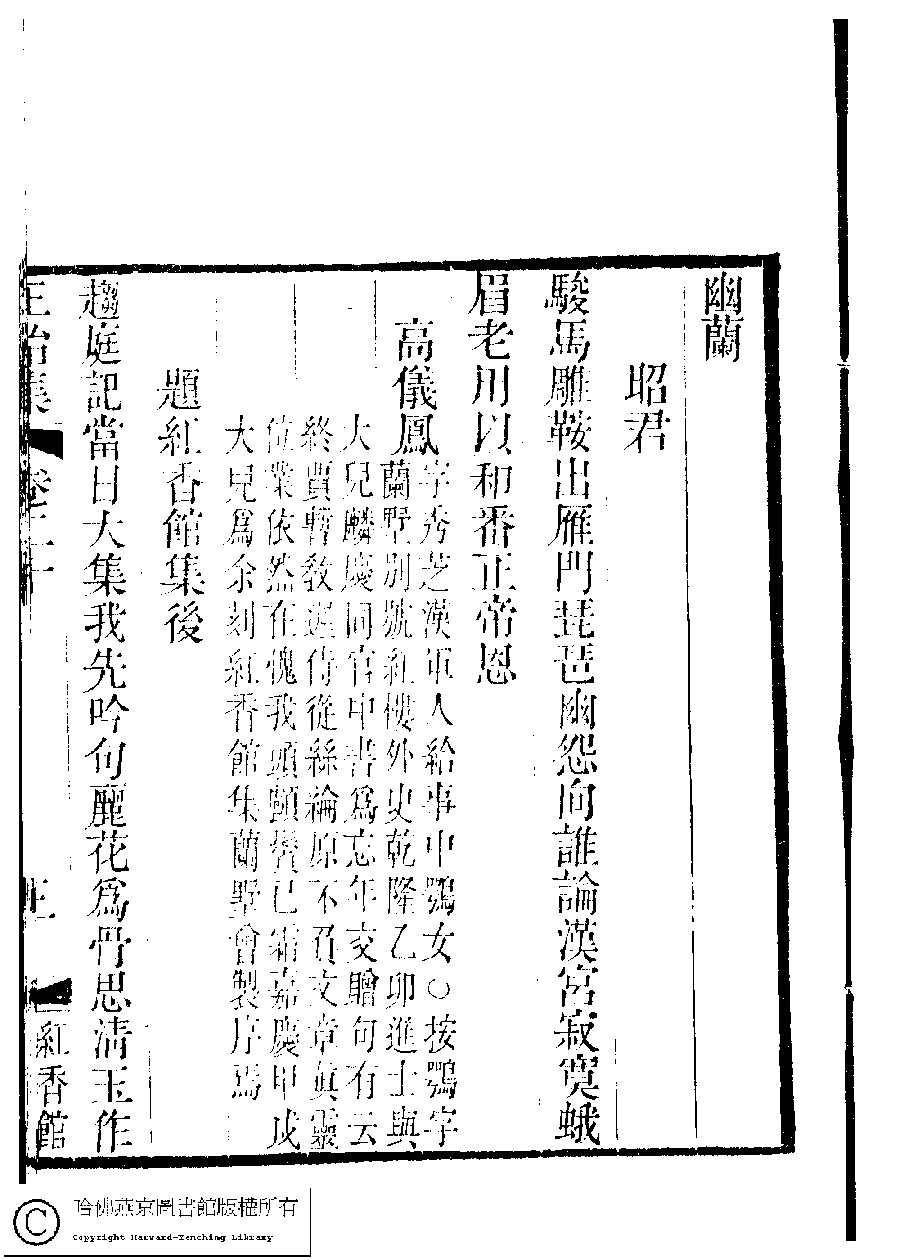 幽蘭
昭君
駿馬雕鞍出雁門琵琶幽怨向誰論漢宮寂寞蛾
眉老用以和番正帝恩
高儀鳳
字秀芝漢軍人給事中鶚女○按鶚字
蘭墅別號紅樓外史乾隆乙卯進士與
大兒麟慶同官中書為忘年交贈句有云
終賈暫教遲侍從絲綸原不負文章眞靈
位業依然在愧我頭顱鬢已霜嘉慶甲戌
大兒為余刻紅香館集蘭墅曾製序焉
題紅香館集後
趨庭記當日大集我先吟句麗花為骨思清玉作
正始集 卷二十
紅香館
哈佛燕京圖書館版權所有
Copyright Harvard-Yenching Library